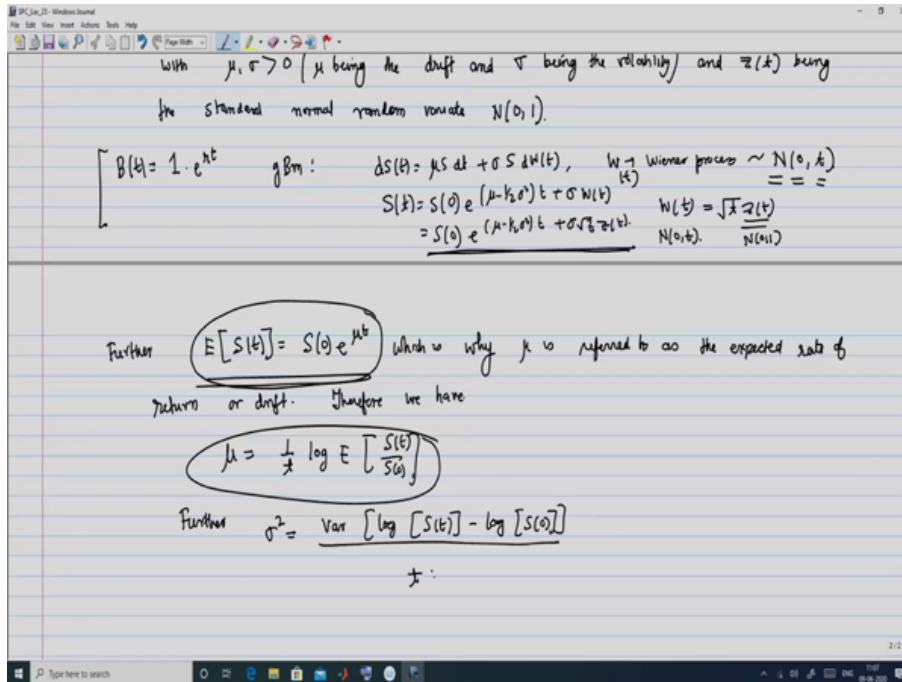 SPC_Lec_25 - Windows Journal
File Edit View Insert Actions Tools Help
Page Width
with μ, σ > 0 (μ being the drift and σ being the volatility) and z(t) being
the standard normal random variate N(0,1).
B(t) = 1·e^{rt} gBm: dS(t) = μS dt + σ S dW(t), W(t) → Wiener process ~ N(0, t)
S(t) = S(0) e^{(μ-½σ²)t + σ W(t)} W(t) = √t z(t)
= S(0) e^{(μ-½σ²)t + σ√t z(t)}. N(0,t). N(0,1)
Further E[S(t)] = S(0) e^{μt} which is why μ is referred to as the expected rate of
return or drift. Therefore we have
μ = 1/t log E [S(t)/S(0)]
Further σ² = Var [log [S(t)] - log [S(0)]]
t :
2/2
Type here to search
ENG
11:07
09-06-2020